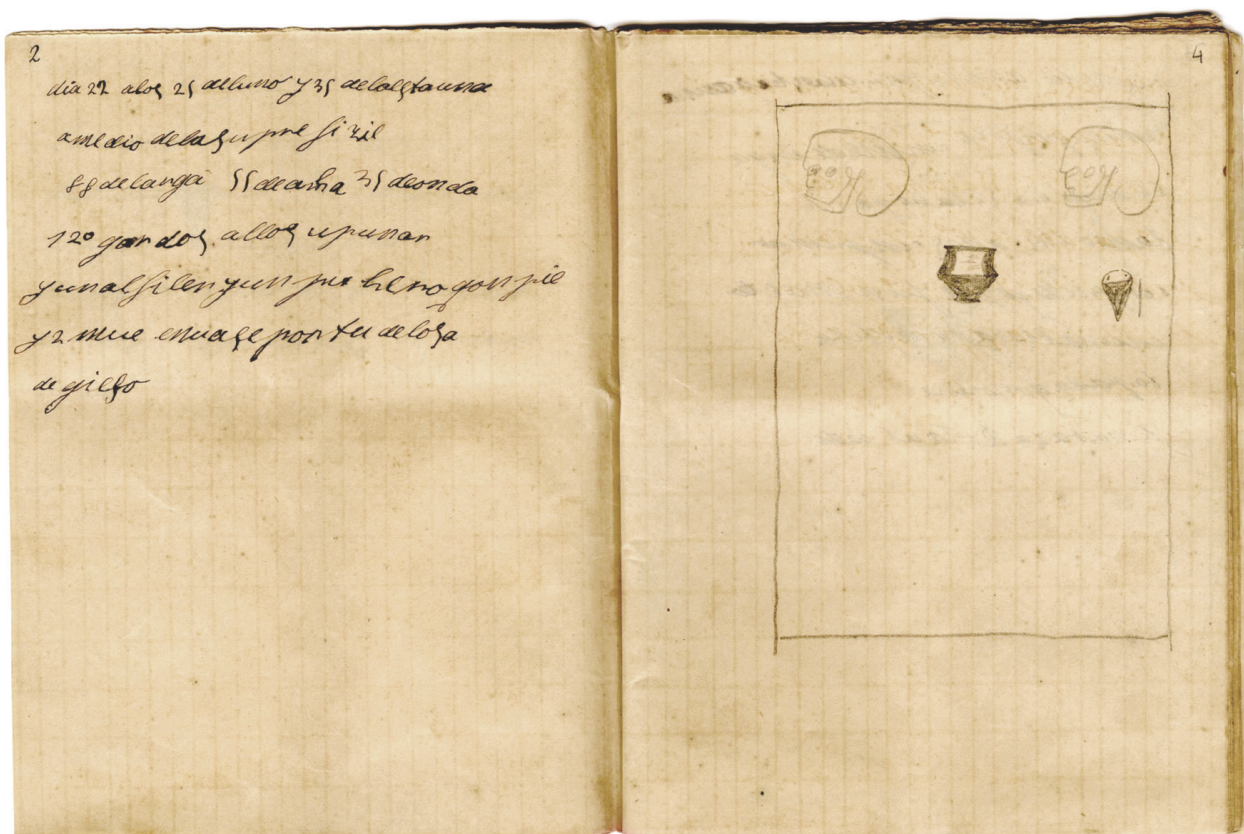 2
dia 22 alos 25 deluno y 35 delalstauna
amedio delasupre fi zil
88 delanga 55 deanha 35 deonda
12º gondos allos upunan
yunalfilen yun pucheno gon pie
y 2 mue enuase pontu delosa
de gielso
4